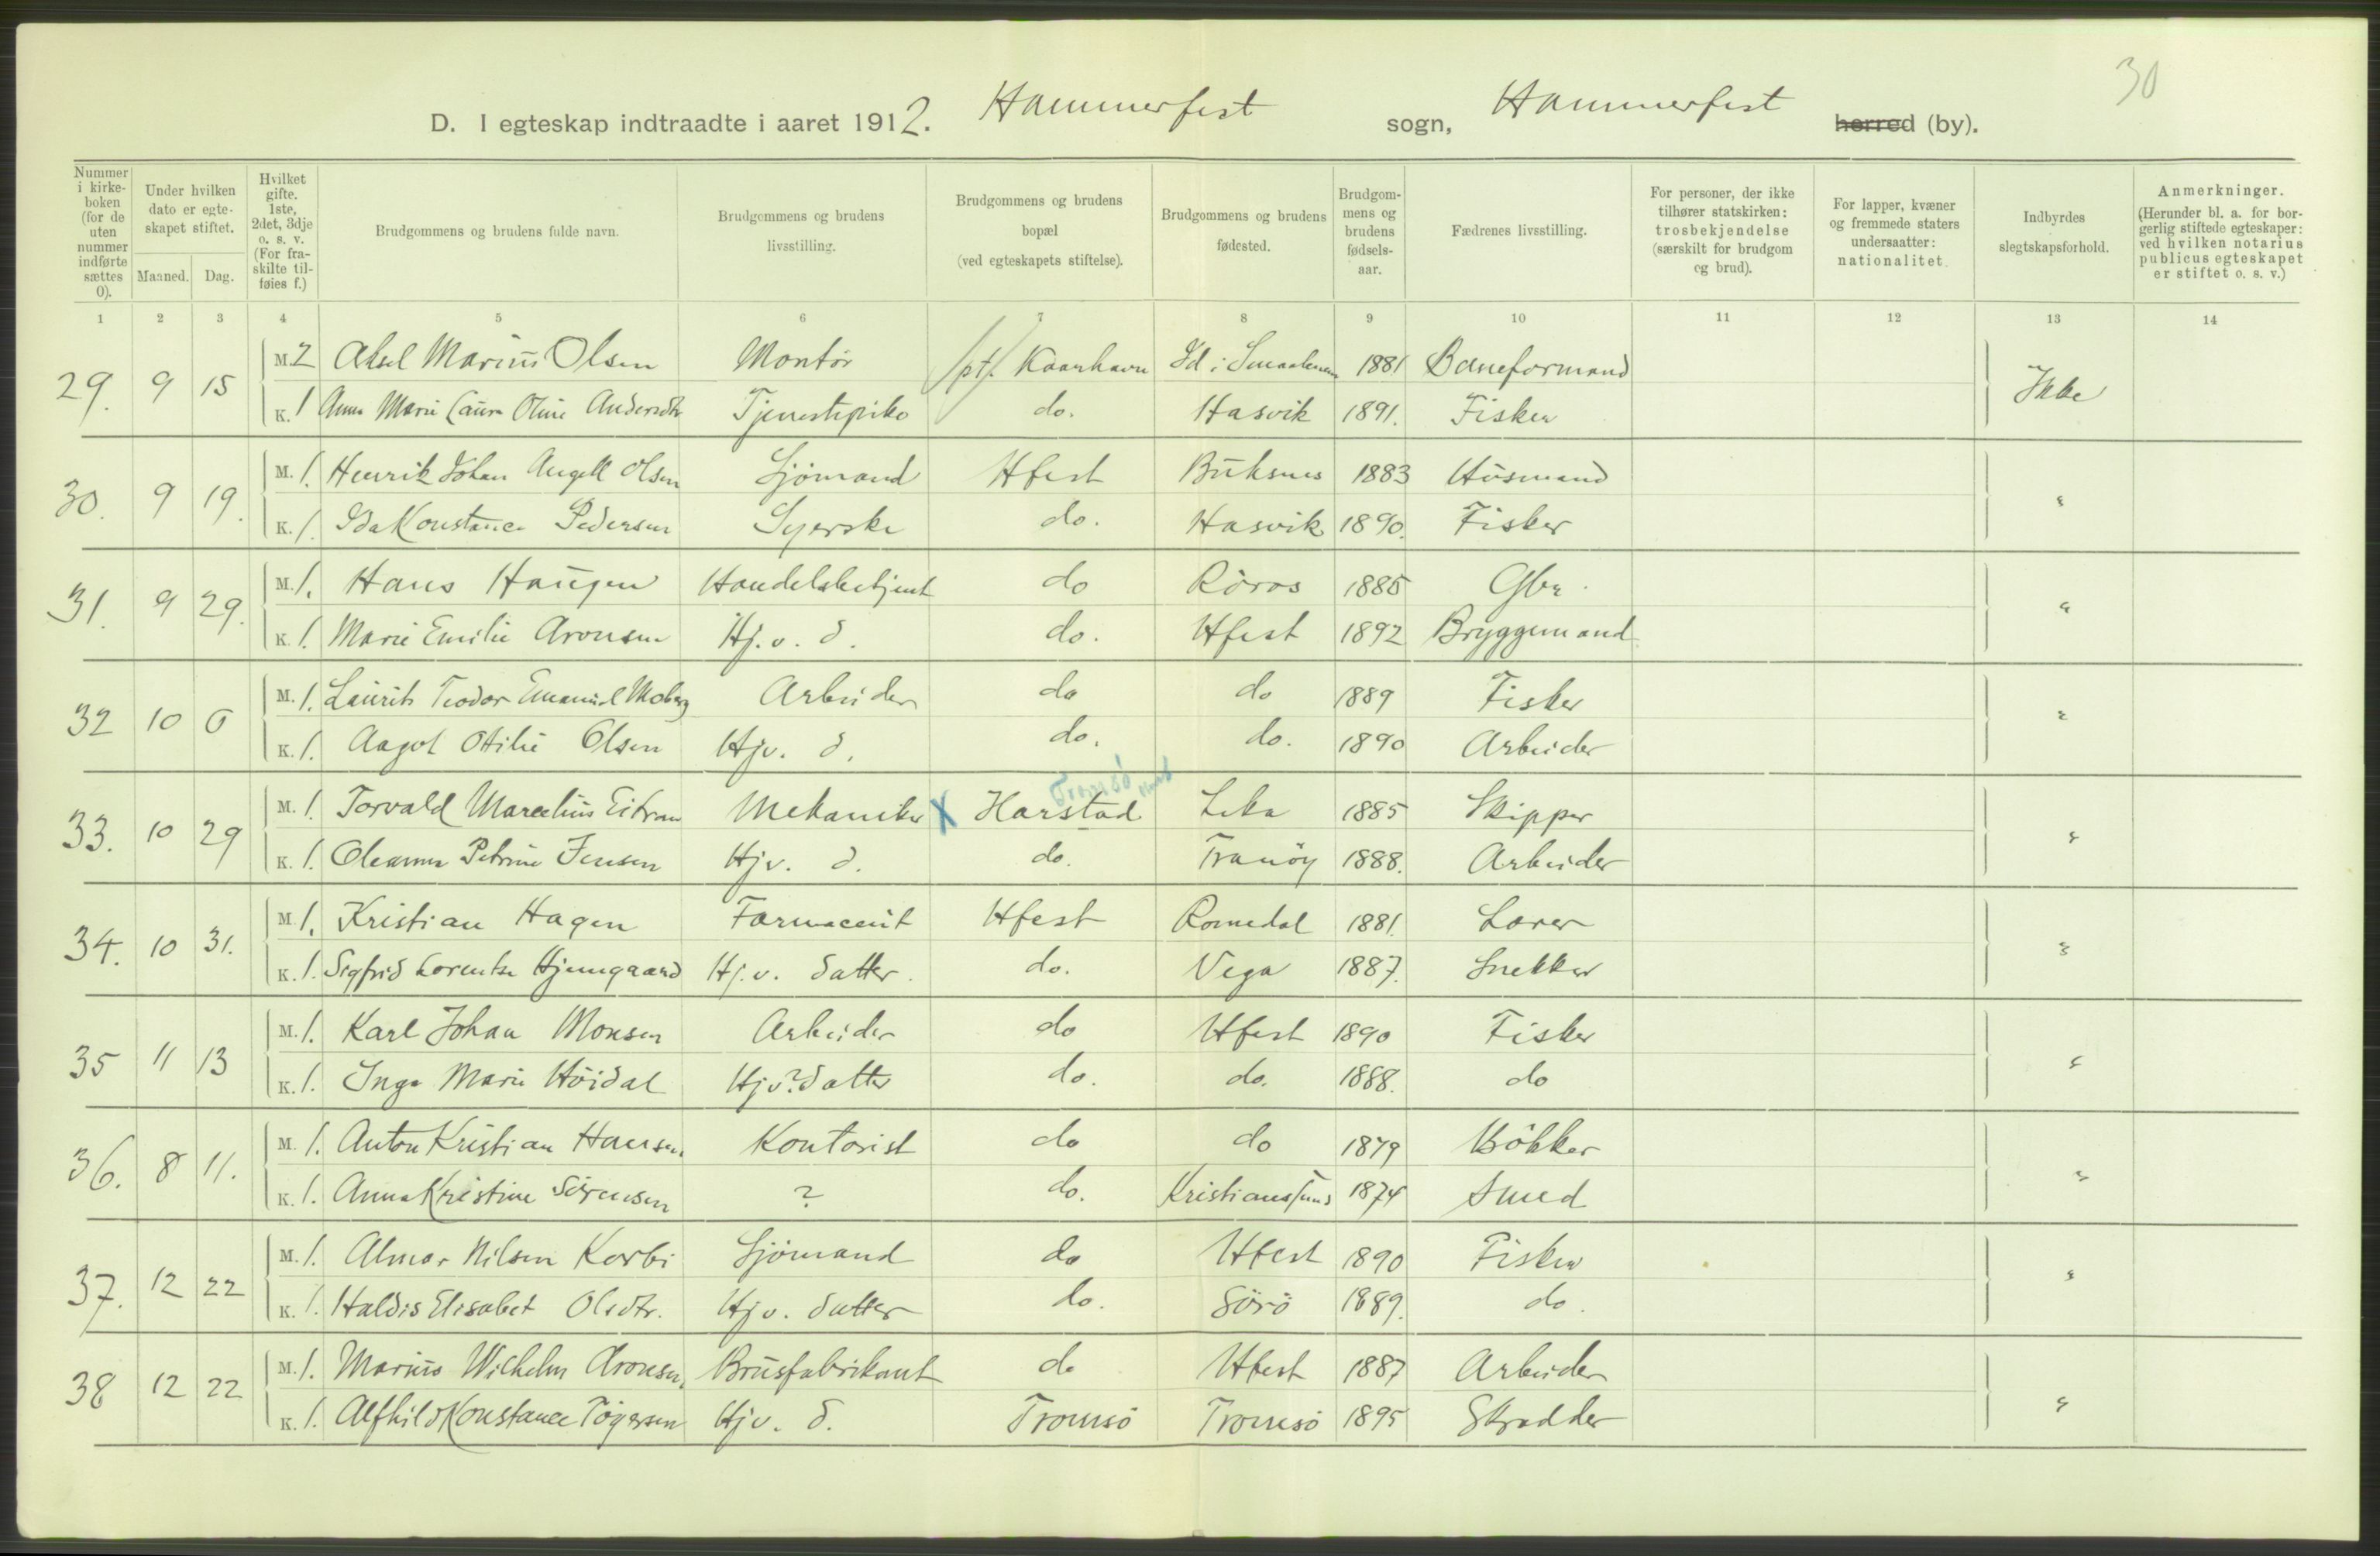 30
D. I egteskap indtraadte i aaret 1912. Hammerfest sogn, Hammerfest herred (by).
Nummer i kirke-boken (for de uten nummer indførte sættes 0). | Under hvilken dato er egte-skapet stiftet. Maaned. Dag. | Hvilket gifte. 1ste, 2det, 3dje o. s. v. (For fra-skilte til-føies f.) | Brudgommens og brudens fulde navn. | Brudgommens og brudens livsstilling. | Brudgommens og brudens bopæl (ved egteskapets stiftelse). | Brudgommens og brudens fødested. | Brudgom-mens og brudens fødsels-aar. | Fædrenes livsstilling. | For personer, der ikke tilhører statskirken: trosbekjendelse (særskilt for brudgom og brud). | For lapper, kvæner og fremmede staters undersaatter: nationalitet. | Indbyrdes slegtskapsforhold. | Anmerkninger. (Herunder bl. a. for bor-gerlig stiftede egteskaper: ved hvilken notarius publicus egteskapet er stiftet o. s. v.)
1 2 3 4 5 6 7 8 9 10 11 12 13 14
29. 9 15 M. 2 Aksel Marius Olsen Montør /pt/. Kaarhavn Id i Smaalenene 1881 Baneformand Ikke
K. 1 Anna Marie Laura Oline Andersdtr Tjenestepike do. Hasvik 1891. Fisker
30. 9 19. M. 1. Henrik Johan Angell Olsen Sjömand Hfest Buksnes 1883 Husmand "
K. 1. Ida Konstance Pedersen Syerske do. Hasvik 1890. Fisker
31. 9 29. M. 1. Hans Haugen Handelsbetjent do Röros 1885 Gbr. "
K. 1. Marie Emilie Aronsen Hj. v. d. do. Hfest 1892 Bryggemand
32 10 6 M. 1. Laurits Teodor Emanuel Moberg Arbeider do do 1889 Fisker "
K. 1. Aagot Otilie Olsen Hjv. d. do. do. 1890 Arbeider
Tromsö
33. 10 29 M. 1. Torvald Marcelius Eitran Mekaniker X Harstad Leka 1885 Skipper "
K. 1. Oleanna Petrine Jensen Hjv. d. do. Tranöy 1888. Arbeider
34. 10 31. M. 1. Kristian Hagen Farmaceut Hfest Romedal 1881. Lærer "
K. 1. Sigfrid Lorentse Hjemgaard Hj. v. datter. do. Vega 1887. Snekker
35 11 13 M. 1. Karl Johan Monsen Arbeider do Hfest 1890 Fisker "
K. 1. Inga Marie Höidal Hjv? datter do. do. 1888. do
36. 8 11. M. 1. Anton Kristian Hansen Kontorist do do 1879 Bökker "
K. 1. Anna Kristine Sörensen ? do. Kristianssund 1874 Smed
37. 12 22 M. 1. Almar Nilsen Korbi Sjömand do Hfest 1890 Fisker "
K. 1. Haldis Elisabet Olsdtr. Hjv. datter do. Sörö 1889. do.
38 12 22 M. 1. Marius Wilhelm Aronsen Brusfabrikant do Hfest 1887 Arbeider "
K. 1. Alfhild Konstance Tögersen Hjv. d. Tromsö Tromsö 1895 Skrædder